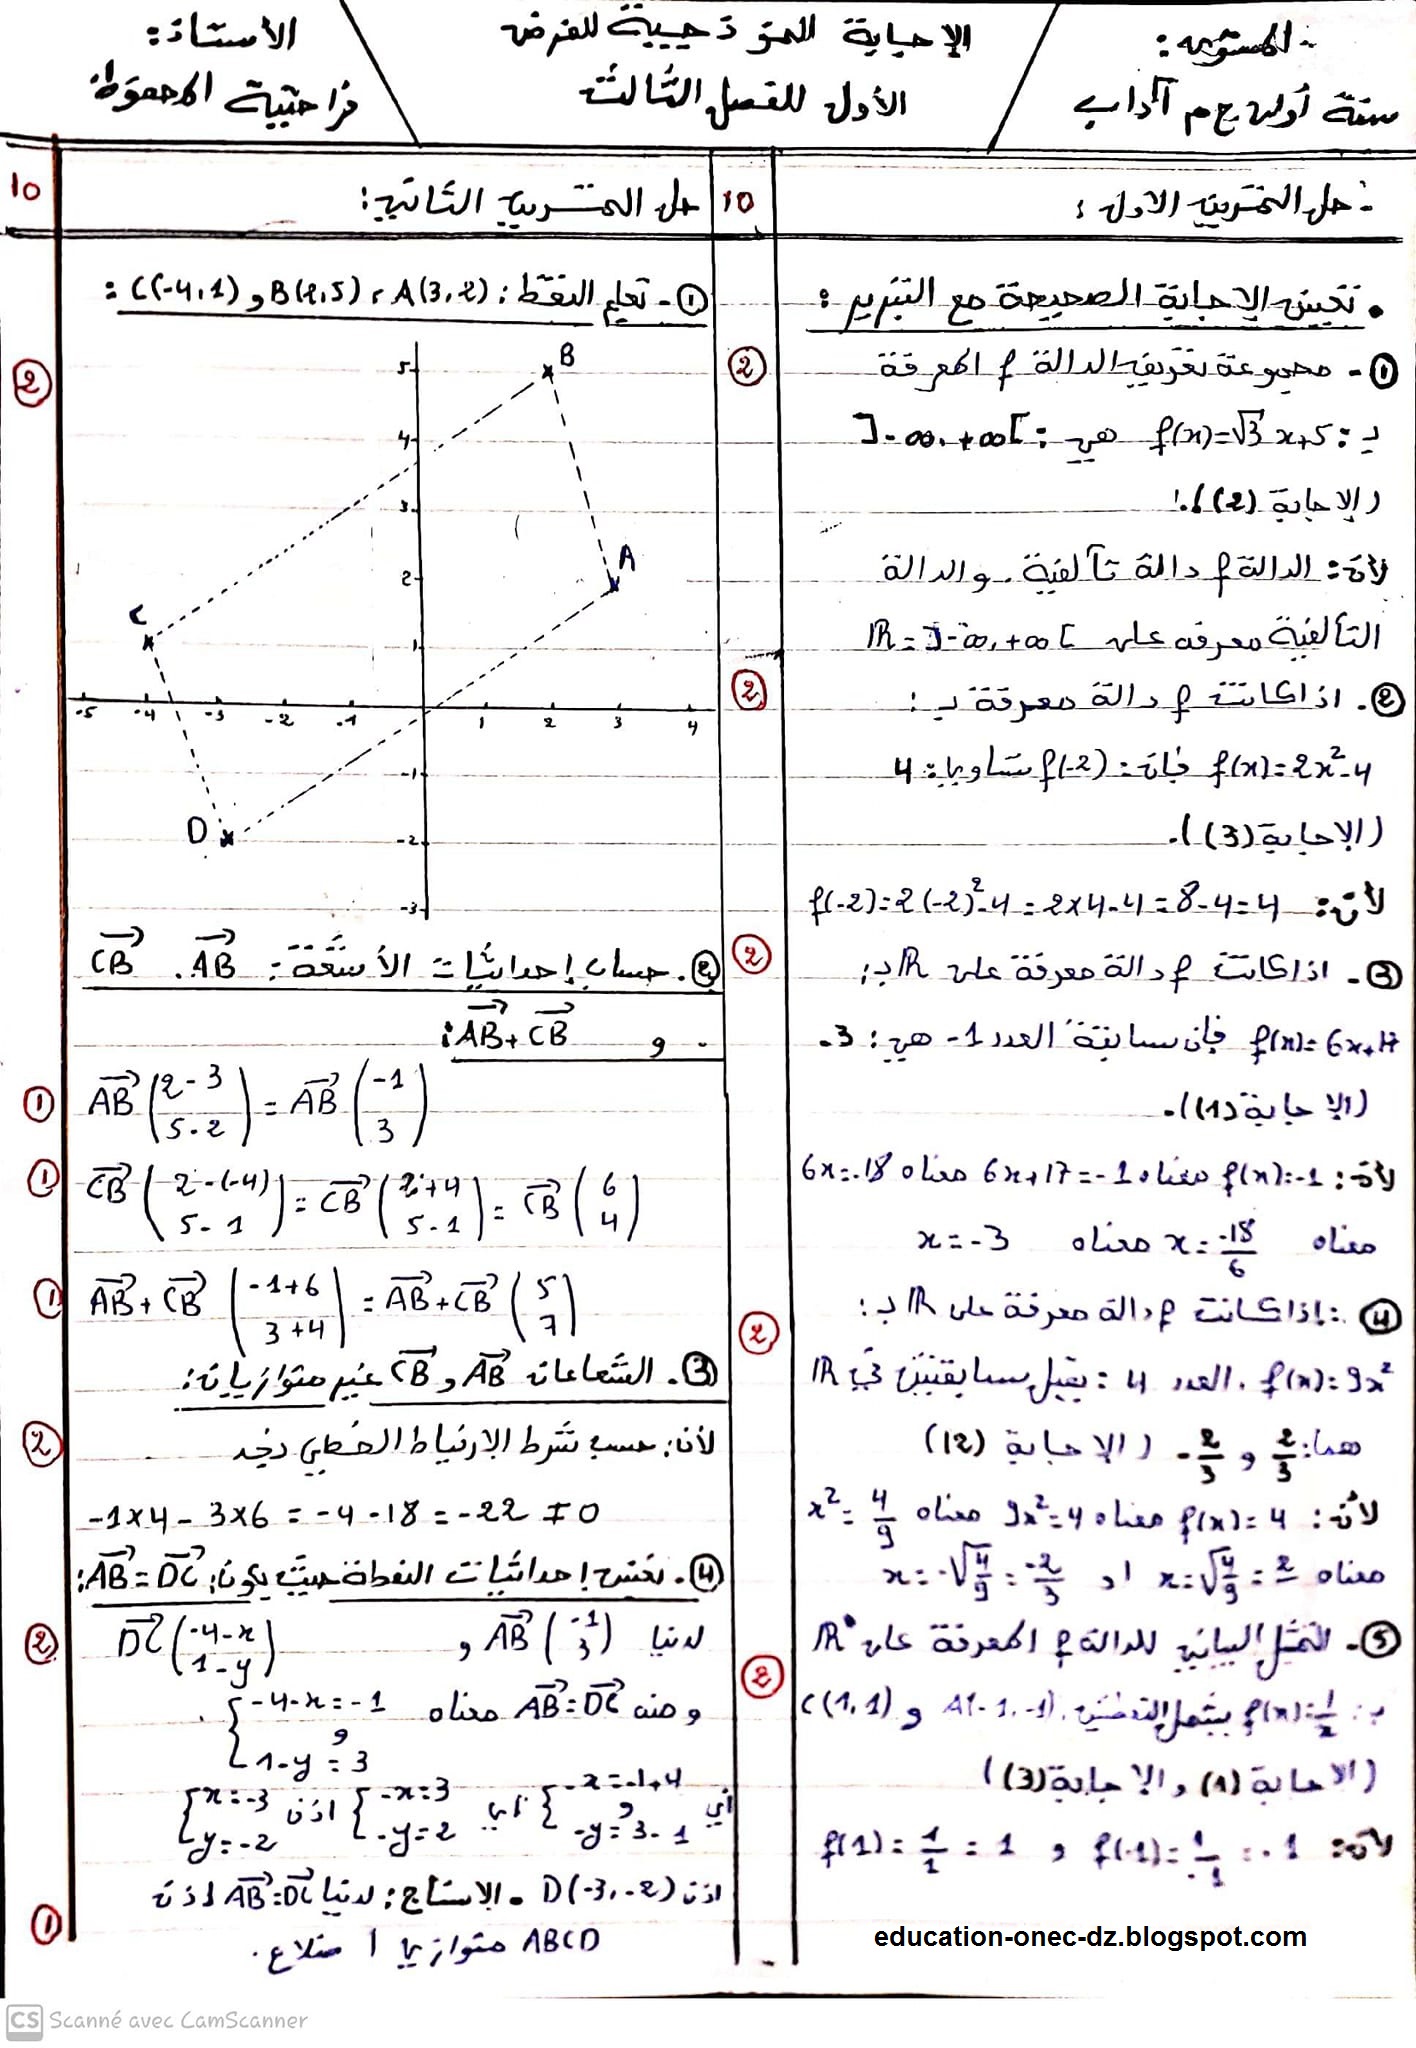 المستوى:
سنة أولى ج م آداب
الإجابة النموذجية للفرض
الأول للفصل الثالث
الأستاذ:
حل التمرين الأول:
10
• تعيين الإجابة الصحيحة مع التبرير:
①- مجموعة تعريف الدالة f المعرفة
بـ: f(x)=√3 x+5 هي: ]-∞,+∞[
(الإجابة (2)).
لأن: الدالة f دالة تآلفية. والدالة
التآلفية معرفة على ]-∞,+∞[ =ℝ
②. اذا كانت f دالة معرفة بـ:
f(x)=2x²-4 فإن: f(-2) تساوي: 4
(الإجابة (3)).
لأن: f(-2)=2(-2)²-4=2×4-4=8-4=4
③. اذا كانت f دالة معرفة على ℝ بـ:
f(x)=6x+17 فإن سابقة العدد 1- هي: 3-
(الإجابة (1)).
لأن: f(x)=-1 معناه 6x+17=-1 معناه 6x=-18
معناه x=-18/6 معناه x=-3
④.: إذا كانت f دالة معرفة على ℝ بـ:
f(x)=9x². العدد 4: يقبل سابقتين في ℝ
هما: 2/3 و -2/3 (الإجابة (2))
لأن: f(x)=4 معناه 9x²=4 معناه x²=4/9
معناه x=√4/9=2 او x=-√4/9=-2/3
⑤- التمثيل البياني للدالة f المعرفة على ℝ*
بـ: f(x)=1/x يشمل النقطتين A(-1,-1) و C(1,1)
(الاجابة (1) والإجابة (3))
لأن: f(-1)=1/-1=-1 و f(1)=1/1=1
education-onec-dz.blogspot.com
حل التمرين الثاني:
10
①- تعليم النقط: A(3,2) ، B(2,5) و C(-4,1):
B
A
C
D
5
4
3
2
1
-1
-2
-3
-5 -4 -3 -2 -1 1 2 3 4
②. حساب إحداثيات الأشعة: AB. CB
و AB+CB:
AB(2-3 5-2)=AB(-1 3)
CB(2-(-4) 5-1)=CB(2+4 5-1)=CB(6 4)
AB+CB(-1+6 3+4)=AB+CB(5 7)
③. الشعاعان AB و CB غير متوازيان:
لأن: حسب شرط الارتباط الخطي نجد
-1×4-3×6=-4-18=-22≠0
④. تعيين إحداثيات النقطة حيث يكون: AB=DC:
لدينا AB(-1 3) و DC(-4-x 1-y)
ومنه AB=DC معناه {-4-x=-1 و 1-y=3
أي {-x=-1+4 و -y=3-1 أي {-x=3 -y=2 اذن {x=-3 y=-2
اذن D(-3,-2). الاستنتاج: لدينا AB=DC إذن
ABCD متوازي أضلاع.
CS Scanné avec CamScanner